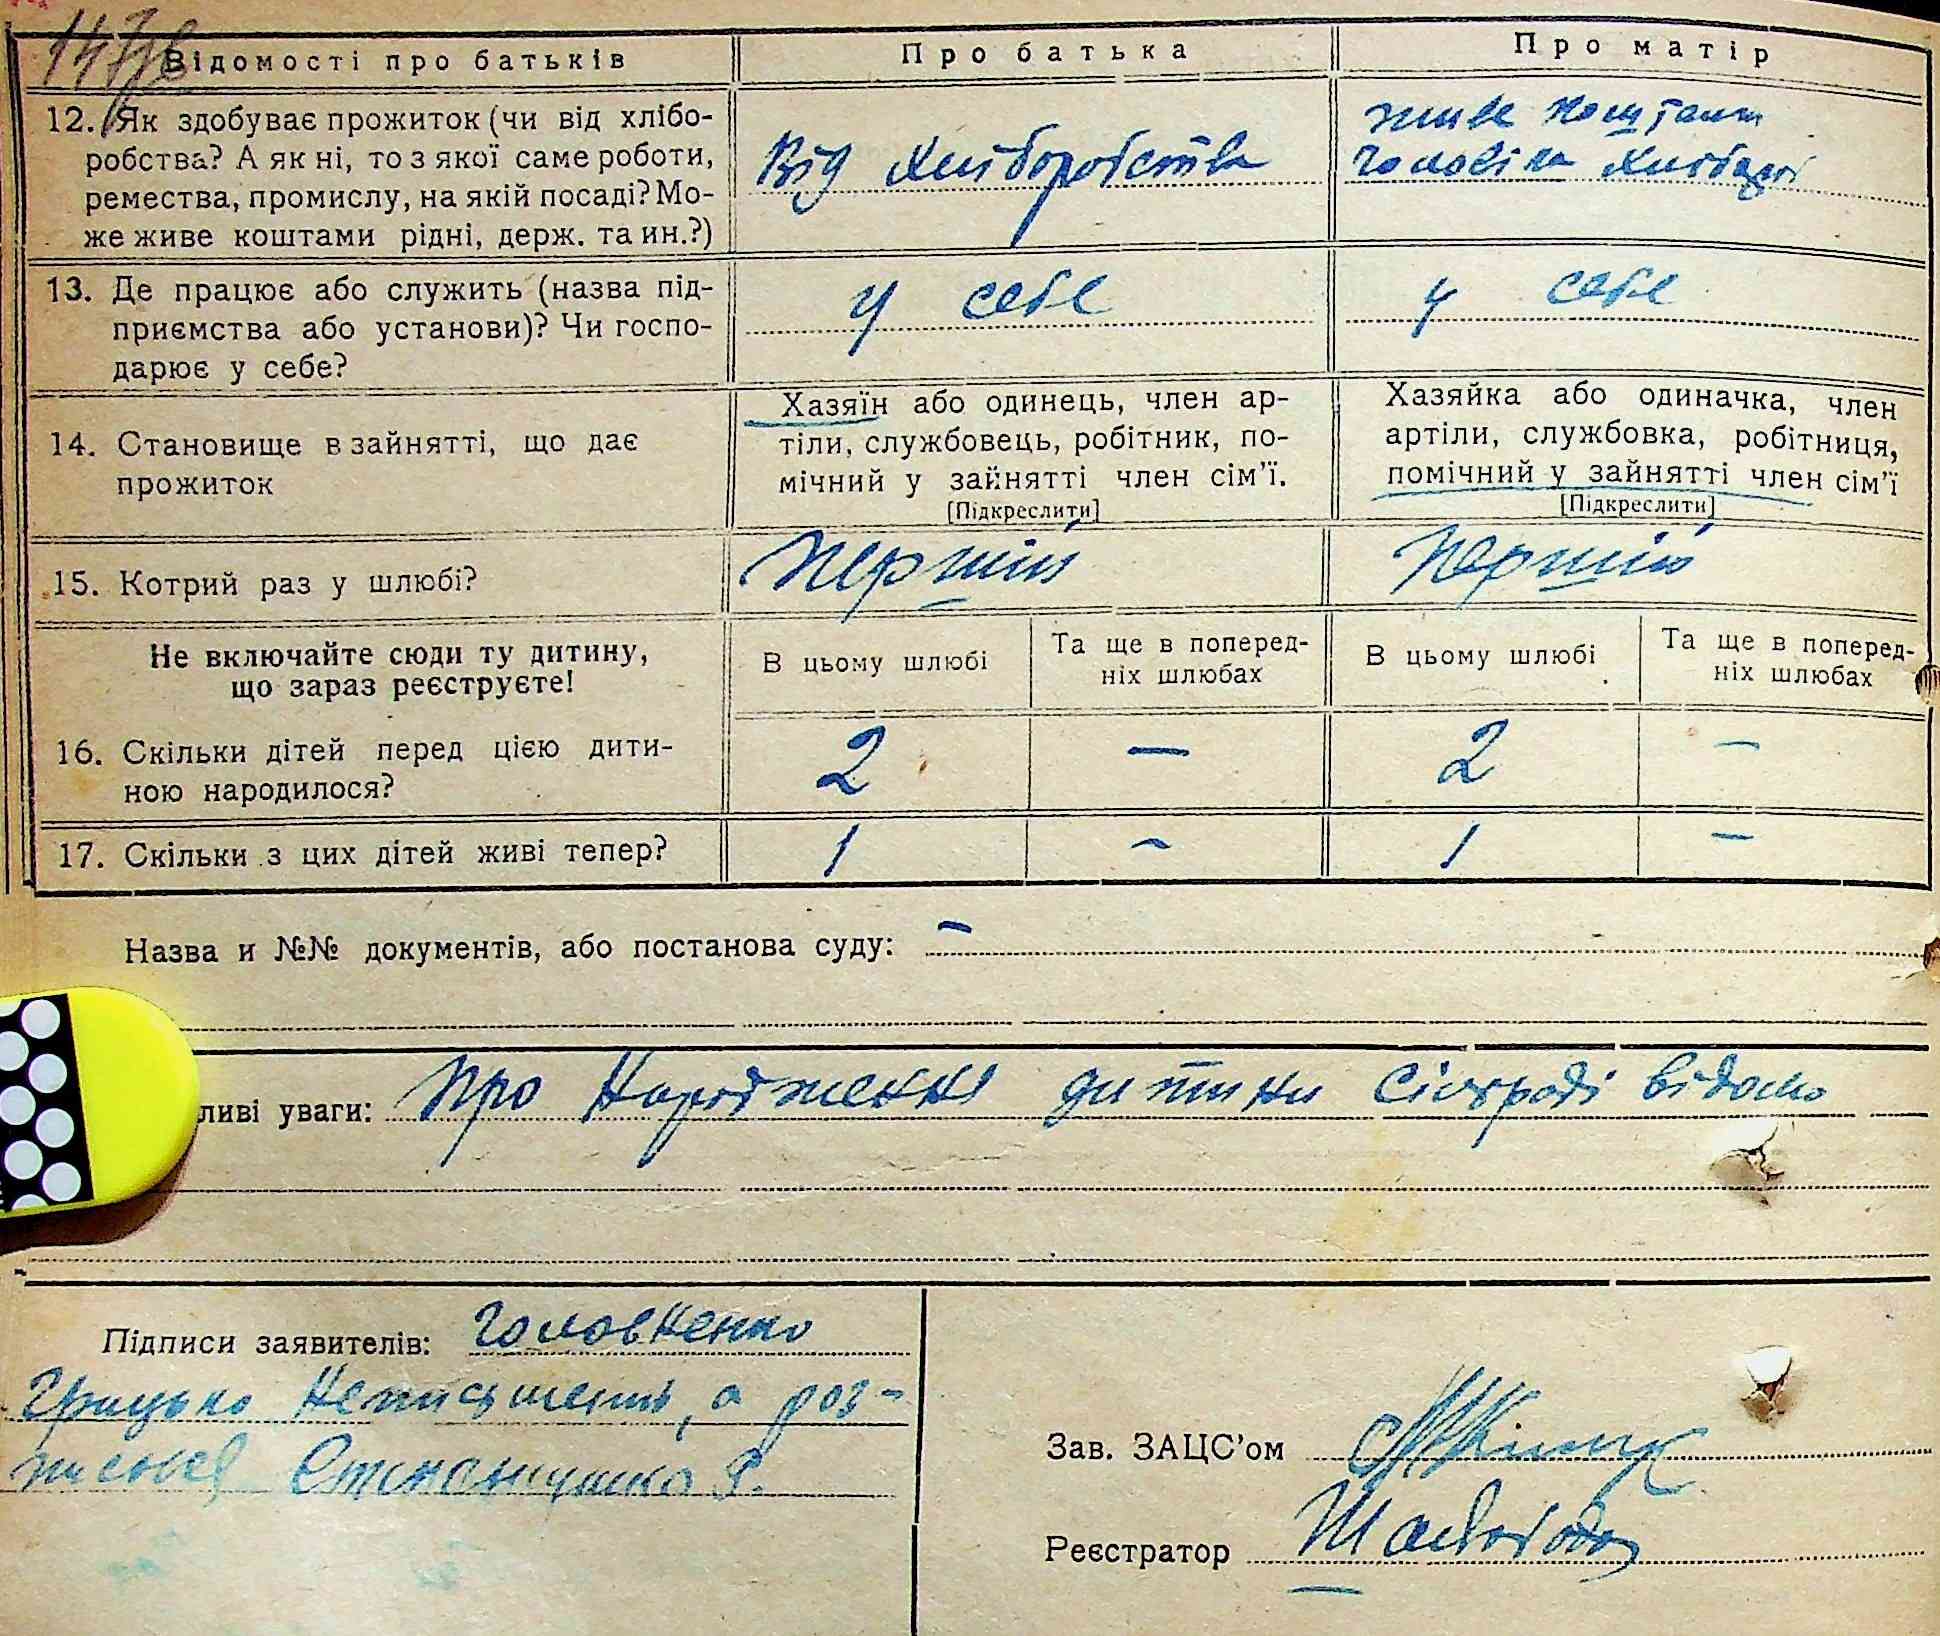 147зв
Відомості про батьків
Про батька
Про матір
12. Як здобуває прожиток (чи від хлібо-
робства? А як ні, то з якої саме роботи,
ремества, промислу, на якій посаді? Мо-
же живе коштами рідні, держ. та ин.?)
Від хліборобства
живе коштами
чоловіка хлібороб
13. Де працює або служить (назва під-
приємства або установи)? Чи госпо-
дарює у себе?
у себе
у себе
14. Становище в зайнятті, що дає
прожиток
Хазяїн або одинець, член ар-
тіли, службовець, робітник, по-
мічний у зайнятті член сім'ї.
[Підкреслити]
Хазяйка або одиначка, член
артіли, службовка, робітниця,
помічний у зайнятті член сім'ї
[Підкреслити]
15. Котрий раз у шлюбі?
Перший
Перший
Не включайте сюди ту дитину,
що зараз реєструєте!
В цьому шлюбі
Та ще в поперед-
ніх шлюбах
В цьому шлюбі
Та ще в поперед-
ніх шлюбах
16. Скільки дітей перед цією дити-
ною народилося?
2
—
2
—
17. Скільки з цих дітей живі тепер?
1
—
1
—
Назва и №№ документів, або постанова суду: —
ливі уваги: Про народження дитини сільраді відомо
Підписи заявителів: Головненко
Грицько неписьмений, а роз-
писався
Зав. ЗАЦС'ом
Реєстратор